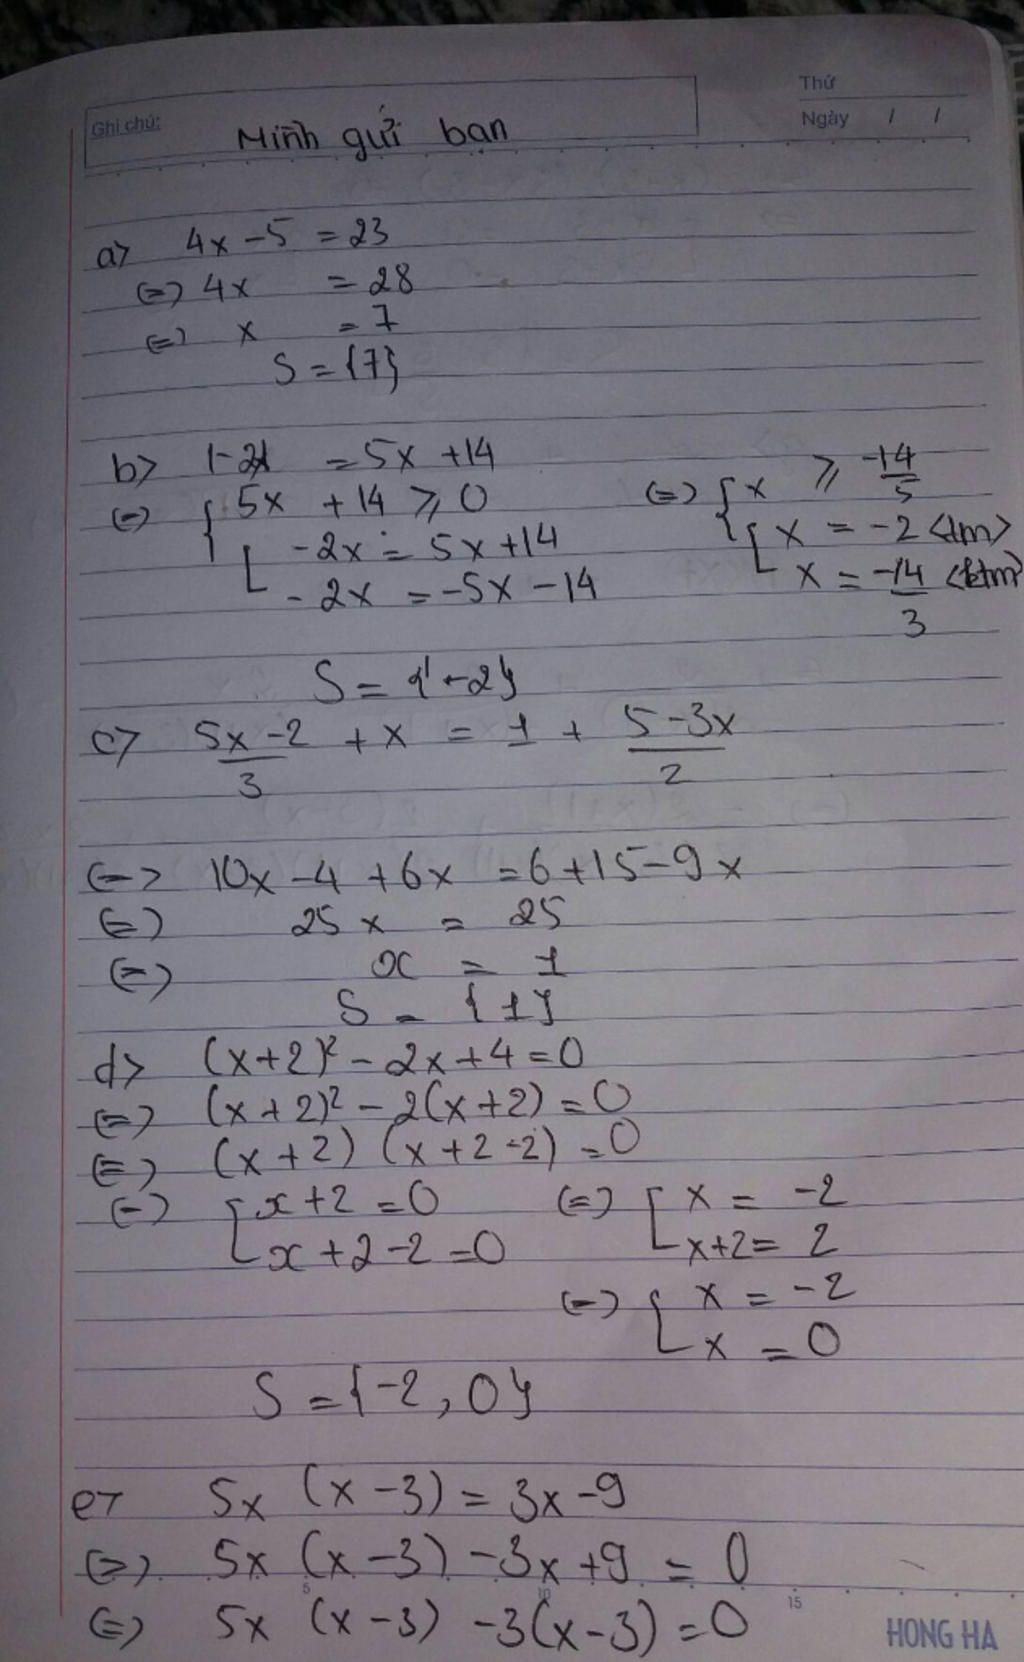 Thứ
Ghi chú: Mình gửi bạn
Ngày / /
a> 4x - 5 = 23
(=) 4x = 28
(=) x = 7
S = {7}
b> |-2x| = 5x + 14
(=) { 5x + 14 ⩾ 0 (=) { x ⩾ -14/5
[ -2x = 5x + 14 [ x = -2 <tm>
-2x = -5x - 14 x = -14/3 <ktm>
S = {-2}
c> 5x - 2/3 + x = 1 + 5 - 3x/2
(=> 10x - 4 + 6x = 6 + 15 - 9x
(=) 25x = 25
(=) x = 1
S = {1}
d> (x + 2)² - 2x + 4 = 0
(=) (x + 2)² - 2(x + 2) = 0
(=) (x + 2) (x + 2 - 2) = 0
(=) [ x + 2 = 0 (=) [ x = -2
x + 2 - 2 = 0 x + 2 = 2
(=) [ x = -2
x = 0
S = {-2, 0}
e> 5x (x - 3) = 3x - 9
(=) 5x (x - 3) - 3x + 9 = 0
5 10 15
(=) 5x (x - 3) - 3(x - 3) = 0
HONG HA